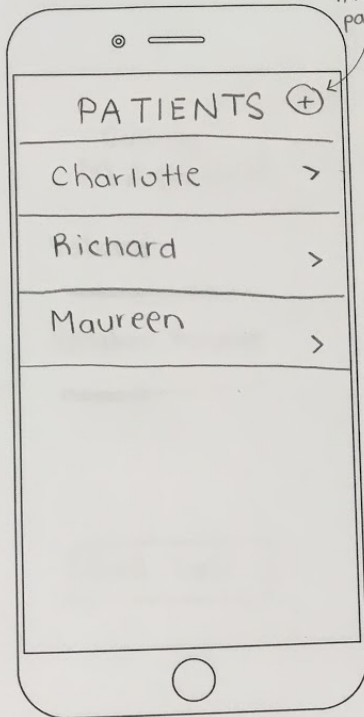 PATIENTS +
Charlotte >
Richard >
Maureen >